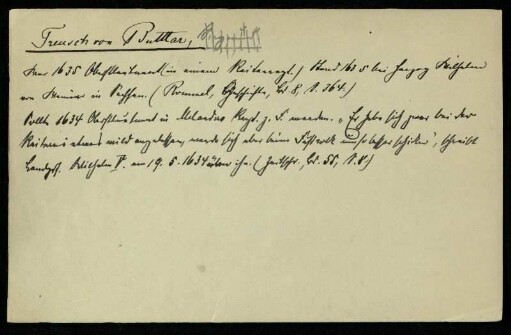 Treusch von Buttlar,
War 1635 Oberstleutnant (in einem Reiterregt.) stand 1635 bei Herzog Wilhelm
von Weimar in Sachsen. (Rommel, Geschichte, Bd 8, S. 364.)
Sollte 1634 Oberstleutnant in Melanders Regt. z. F. werden. „Er habe sich zwar bei der
Reiterei etwas wild angelassen, werde sich aber beim Fußvolk umso besser schicken", schreibt
Landgf. Wilhelm V. am 19. 5. 1634 über ihn. (Zeitschr., Bd. 55, S. 8.)